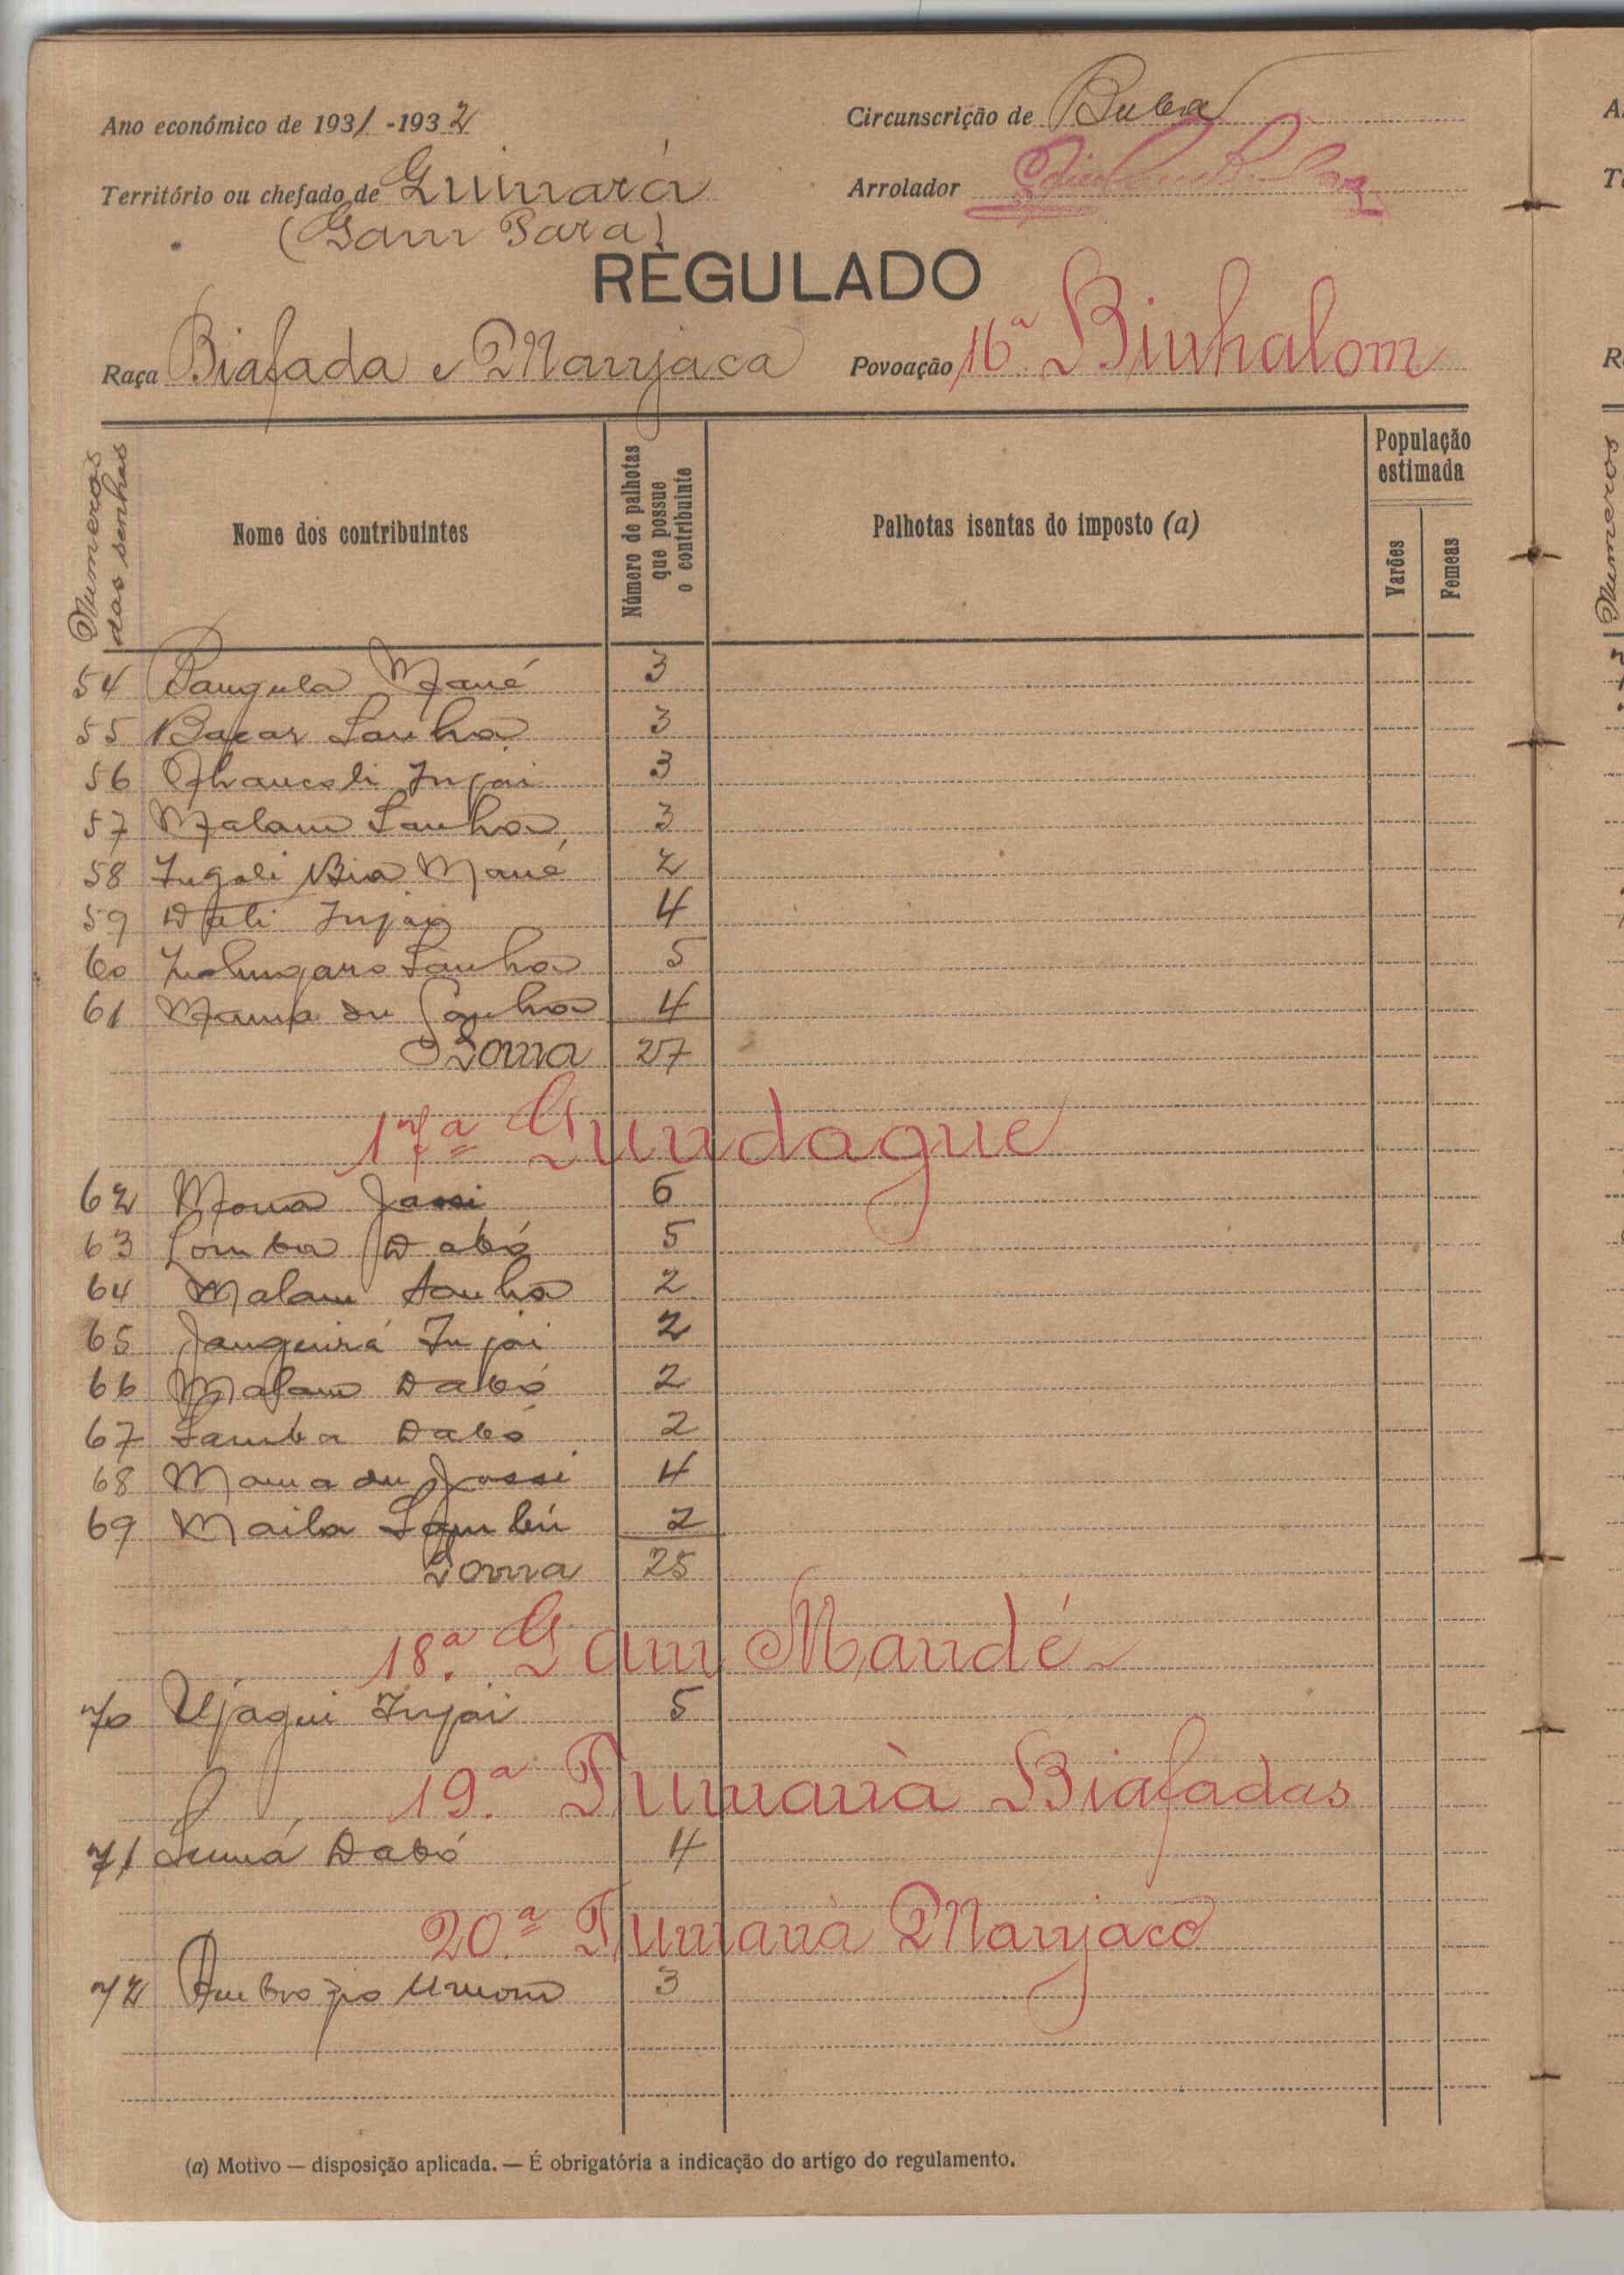 Ano económico de 1931-1932
Circunscrição de Buba
Território ou chefado de Guinará
(Gam Pará)
Arrolador
REGULADO
Raça Biafada e Manjaca
Povoação 16ª Binhalom
Numeros das senhas
Nome dos contribuintes
Número de palhotas que possue o contribuinte
Palhotas isentas do imposto (a)
População estimada
Varões
Femeas
54 Mané 3
55 Bacar Sanhá 3
56 Injai 3
57 Malam Sanhá 3
58 Ingali Bia Mané 2
59 Injai 4
60 Sanhá 5
61 Mama du Sanhá 4
Soma 27
17ª Gundague
62 Jassi 6
63 Dabó 5
64 Malam Sanhá 2
65 Janguirá Injai 2
66 Malam Dabó 2
67 Samba Dabó 2
68 Mama du Jassi 4
69 Maila Sambú 2
Soma 25
18ª Gam Mandé
70 Ujagui Injai 5
19ª Tumaná Biafadas
71 Dabó 4
20ª Tumaná Manjaco
72 Ambrozio 3
(a) Motivo — disposição aplicada. — É obrigatória a indicação do artigo do regulamento.